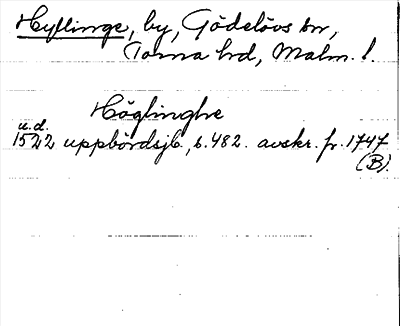 Hyllinge, by, Gödelövs sn,
Torna hd, Malm. l.
Höglinghe
u.d.
1522 uppbördsjb., s. 482. avskr. fr. 1747
(B).